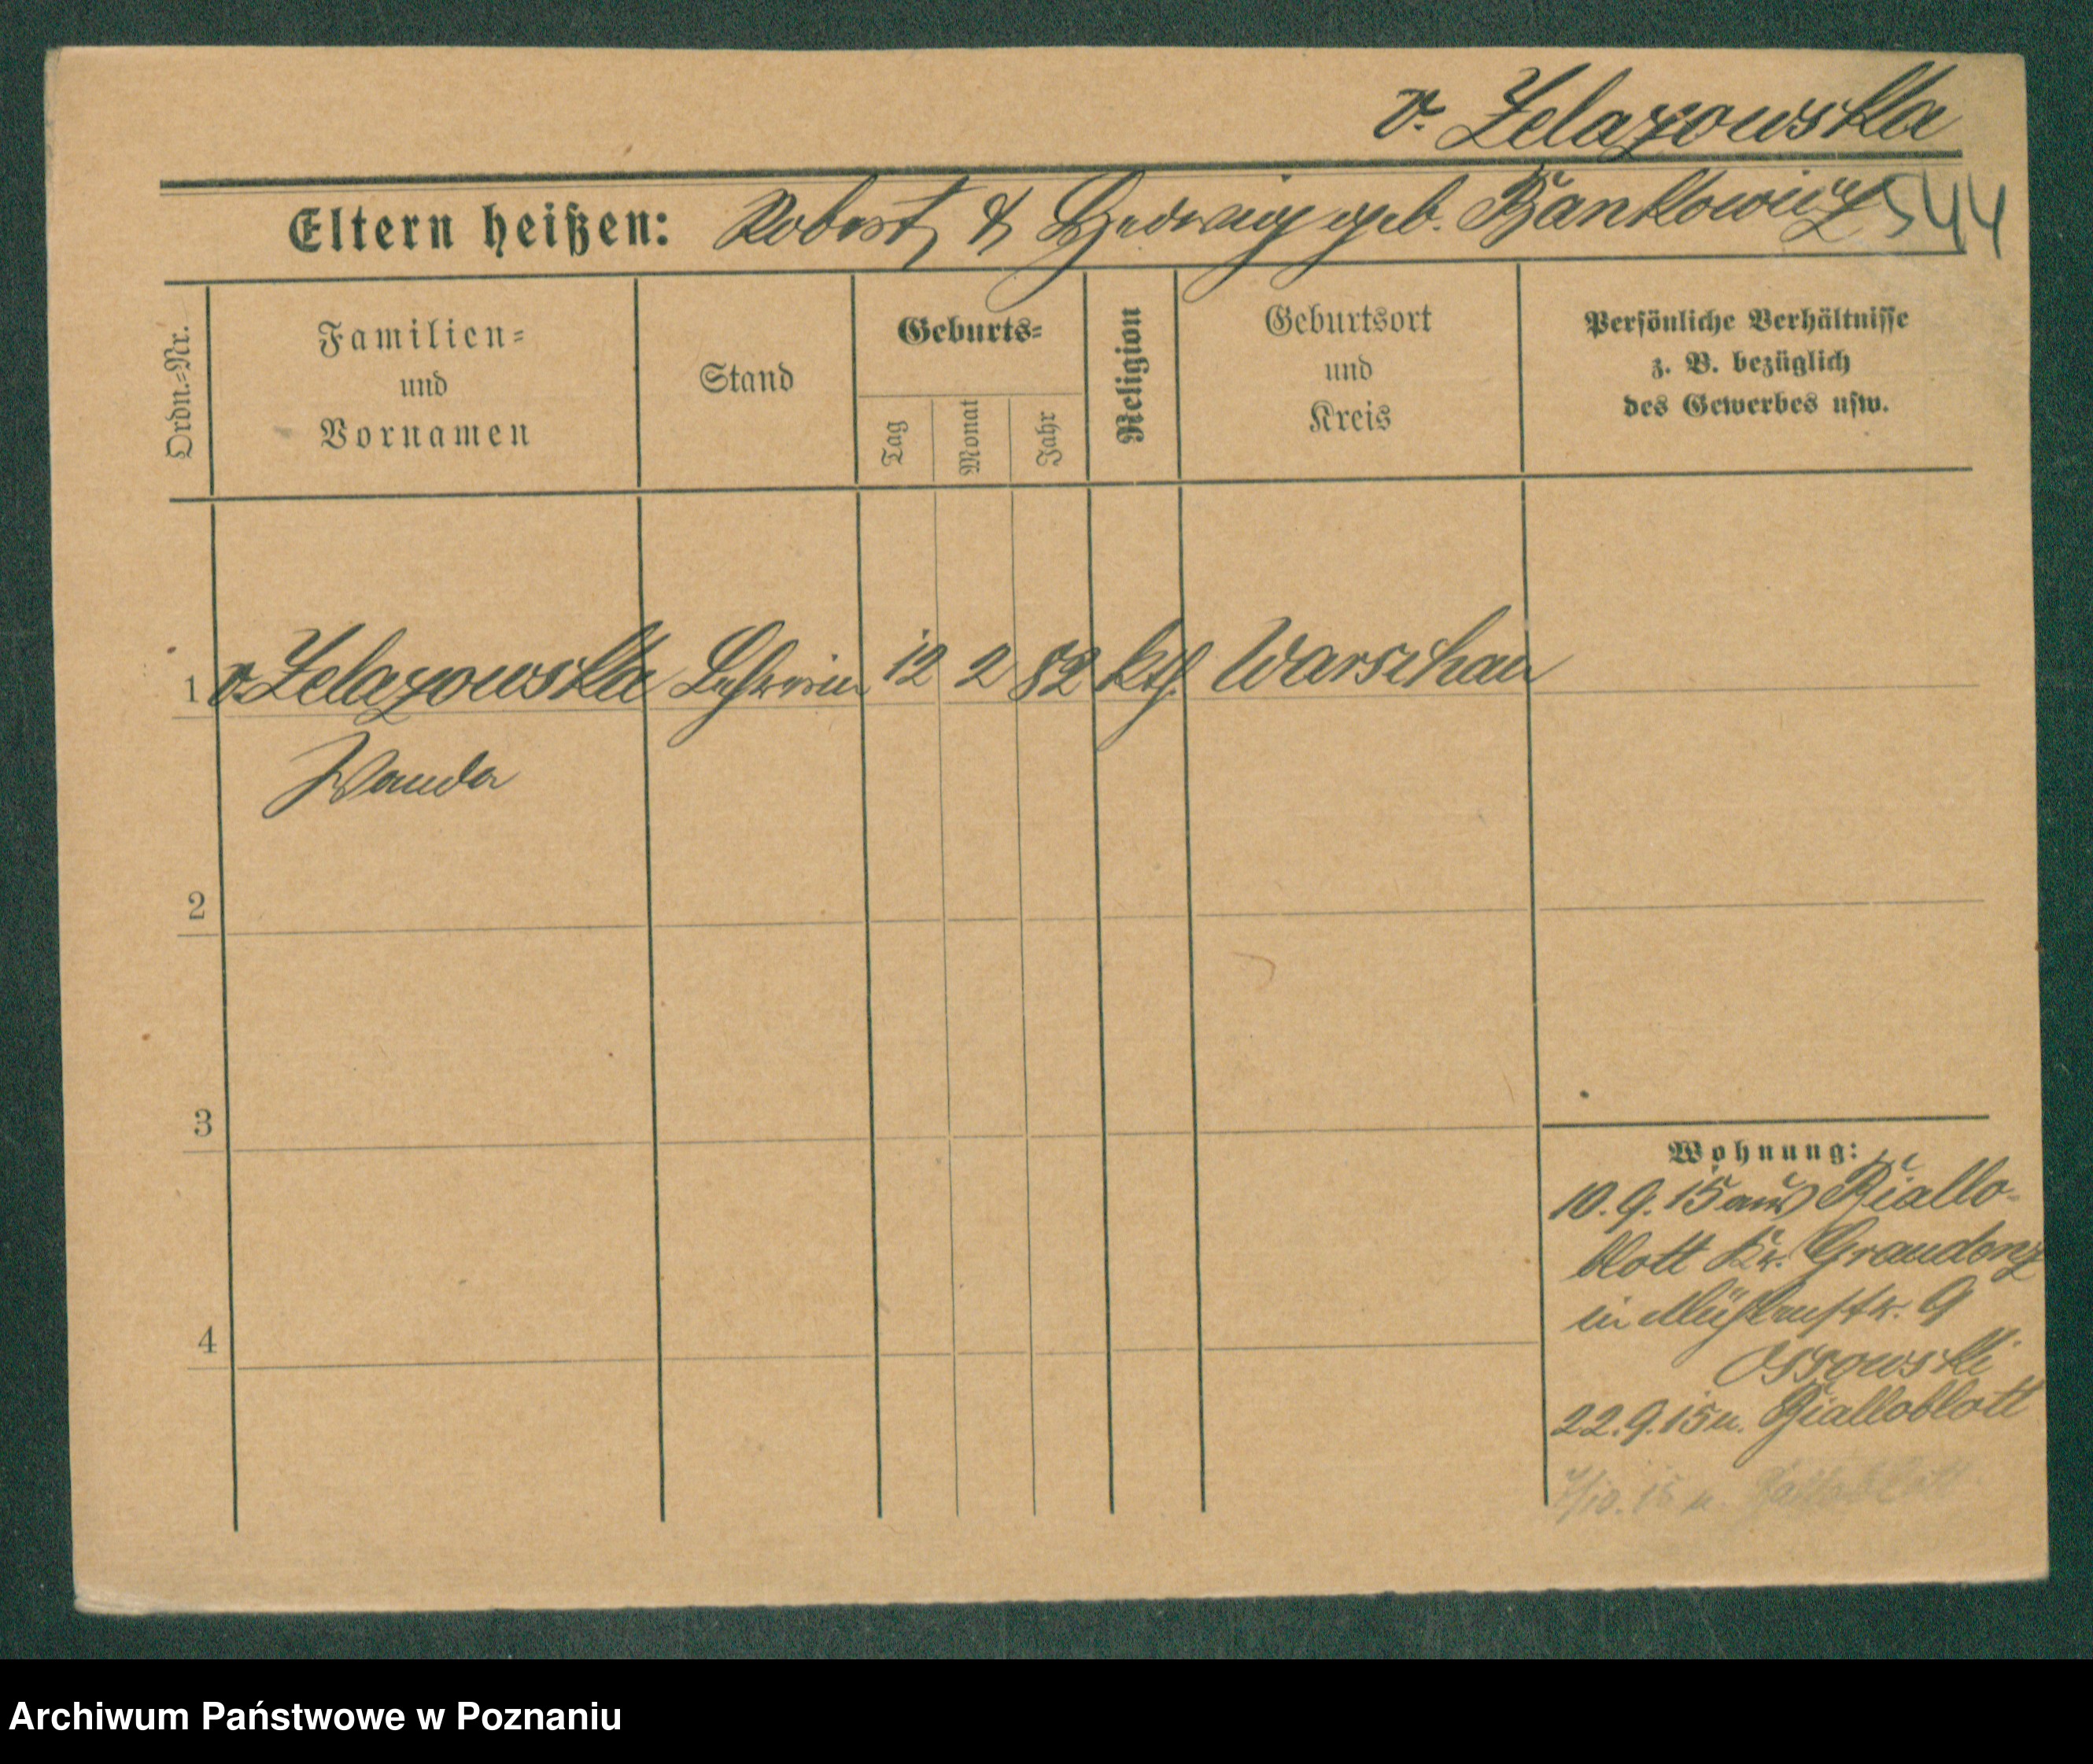 v. Zelazowska
Eltern heißen: Robert & Hedwig geb. Bankowicz 544
Ordn.=Nr.
Familien=
und
Vornamen
Stand
Geburts=
Tag
Monat
Jahr
Religion
Geburtsort
und
Kreis
Persönliche Verhältnisse
z. B. bezüglich
des Gewerbes usw.
1 v. Zelazowska Lehrerin 12 2 82 kth. Warschau
Wanda
2
3
4
Wohnung:
10.9.15 aus Biallo-
blott Kr. Graudenz
in Mühlenstr. 9
Ossowski
22.9.15 n. Bialloblott
7/10.15 n. Bialloblott
Archiwum Państwowe w Poznaniu